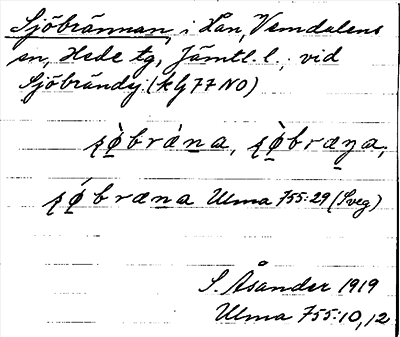 Sjöbrännan, i Lan, Vemdalens
sn, Hede tg, Jämtl. l., vid
Sjöbrändj. (kG 77 NO)
ʂø̀bræ̀na, ʂø̀bræna,
ʂǿbræna Ulma 755:29 (Sveg)
S. Åsander 1919
Ulma 755:10, 12